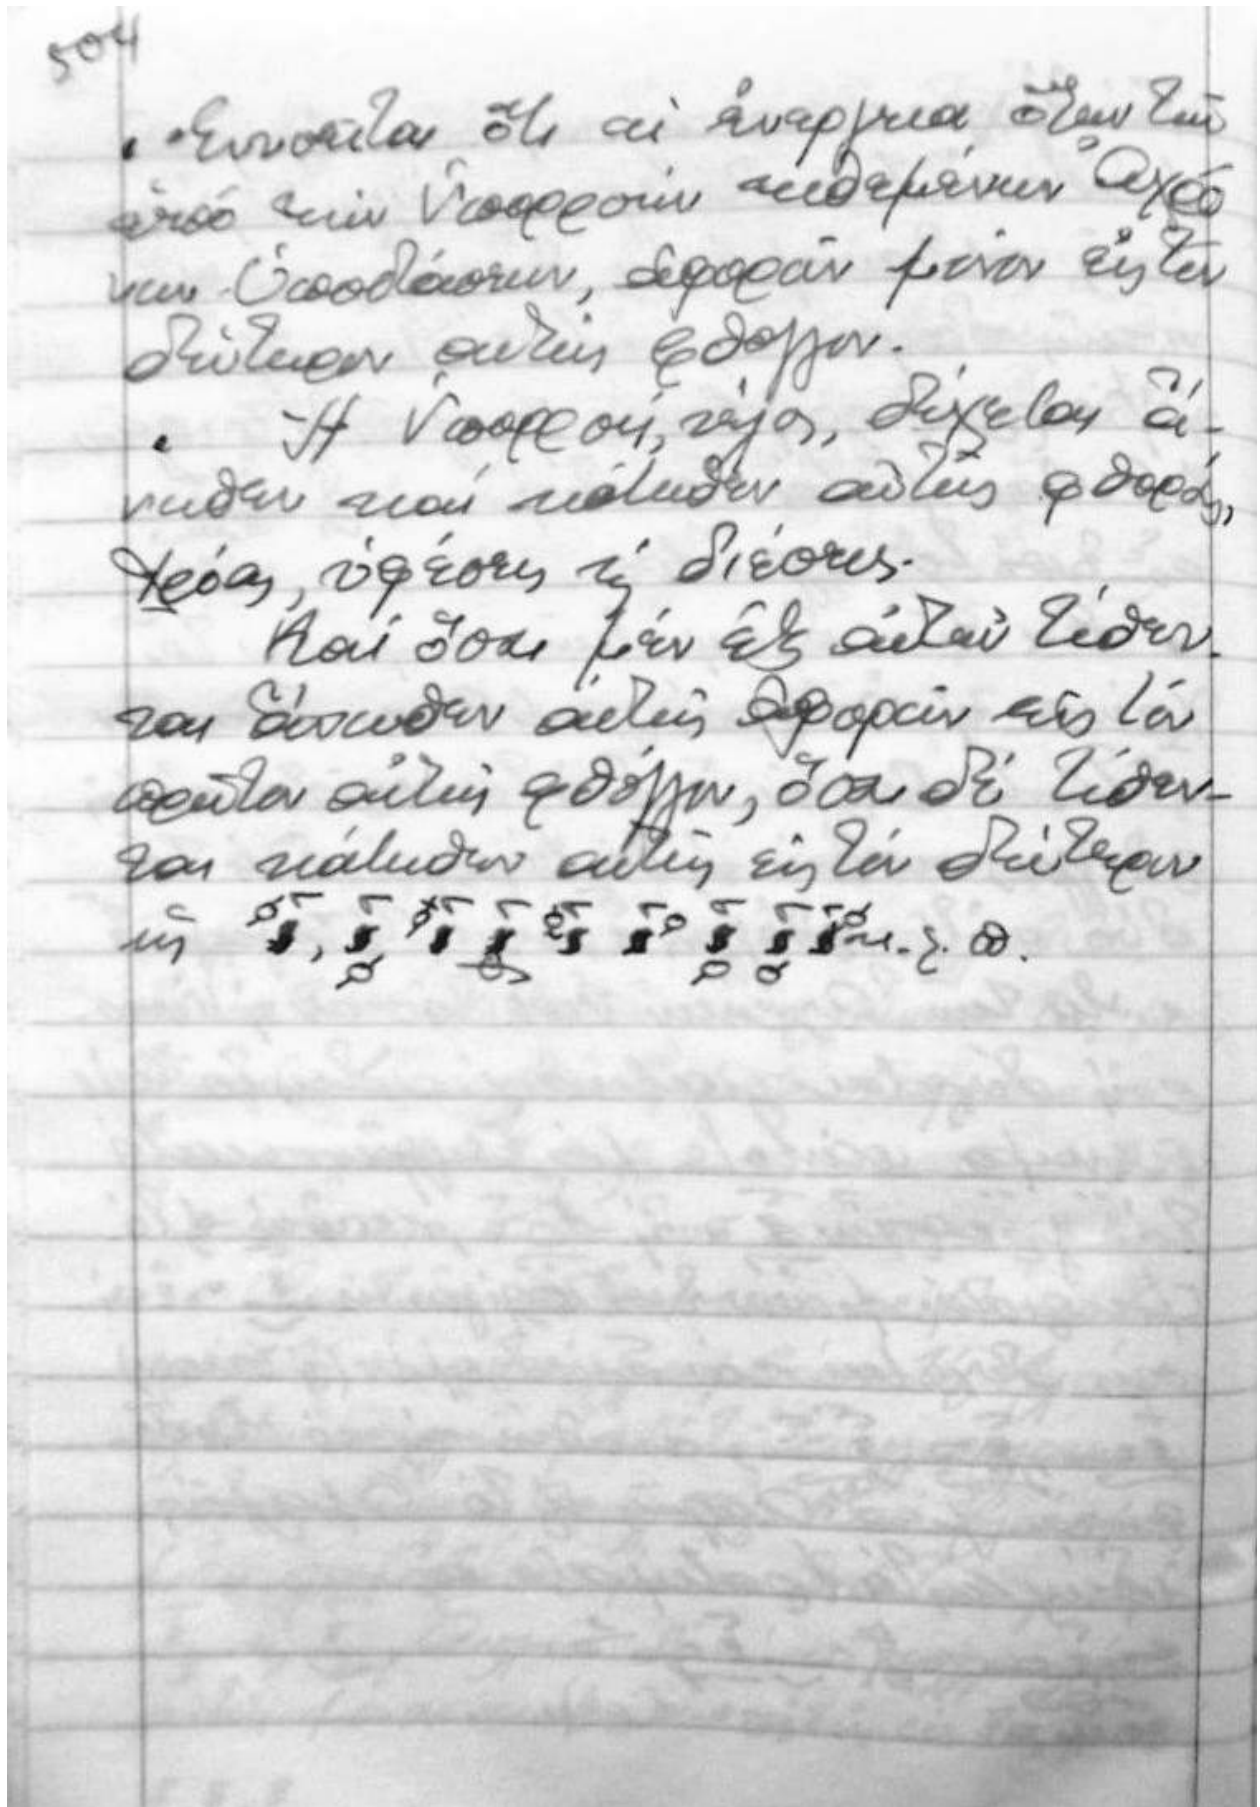 504
• Ἐννοεῖται ὅτι αἱ ἐνέργειαι ὅλων τῶν
ὑπό τήν Ὑπορροήν τιθεμένων Ἀχρό
νων Ὑποστάσεων, ἀφοροῦν μόνον εἰς τόν
δεύτερον αὐτῆς φθόγγον.
• Ἡ Ὑπορροή, τέλος, δέχεται ἄ-
νωθεν καί κάτωθεν αὐτῆς φθοράς,
χρόας, ὑφέσεις ἤ διέσεις.
Καί ὅσαι μέν ἐξ αὐτῶν τίθεν-
ται ἄνωθεν αὐτῆς ἀφοροῦν εἰς τόν
πρῶτον αὐτῆς φθόγγον, ὅσαι δέ τίθεν-
ται κάτωθεν αὐτῆς εἰς τόν δεύτερον
κ.λ.π.